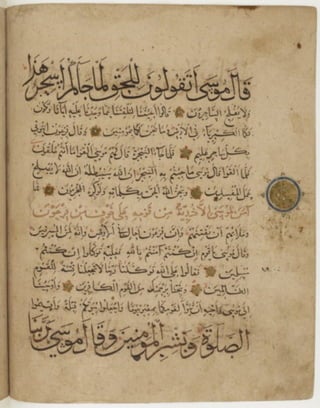 قال موسى أتقولون للحق لما جاءكم أسحر هذا
ولا يفلح الساحرون قالوا أجئتنا لتلفتنا عما وجدنا عليه آباءنا وتكون
لكما الكبرياء في الأرض وما نحن لكما بمؤمنين وقال فرعون ائتوني
بكل ساحر عليم فلما جاء السحرة قال لهم موسى ألقوا ما أنتم ملقون
فلما ألقوا قال موسى ما جئتم به السحر إن الله سيبطله إن الله لا يصلح
عمل المفسدين ويحق الله الحق بكلماته ولو كره المجرمون فما
آمن لموسى إلا ذرية من قومه على خوف من فرعون
وملئهم أن يفتنهم وإن فرعون لعال في الأرض وإنه لمن المسرفين
وقال موسى يا قوم إن كنتم آمنتم بالله فعليه توكلوا إن كنتم
مسلمين فقالوا على الله توكلنا ربنا لا تجعلنا فتنة للقوم
الظالمين ونجنا برحمتك من القوم الكافرين وأوحينا
إلى موسى وأخيه أن تبوءا لقومكما بمصر بيوتا واجعلوا بيوتكم قبلة وأقيموا
الصلوة وبشر المؤمنين وقال موسى ربنا